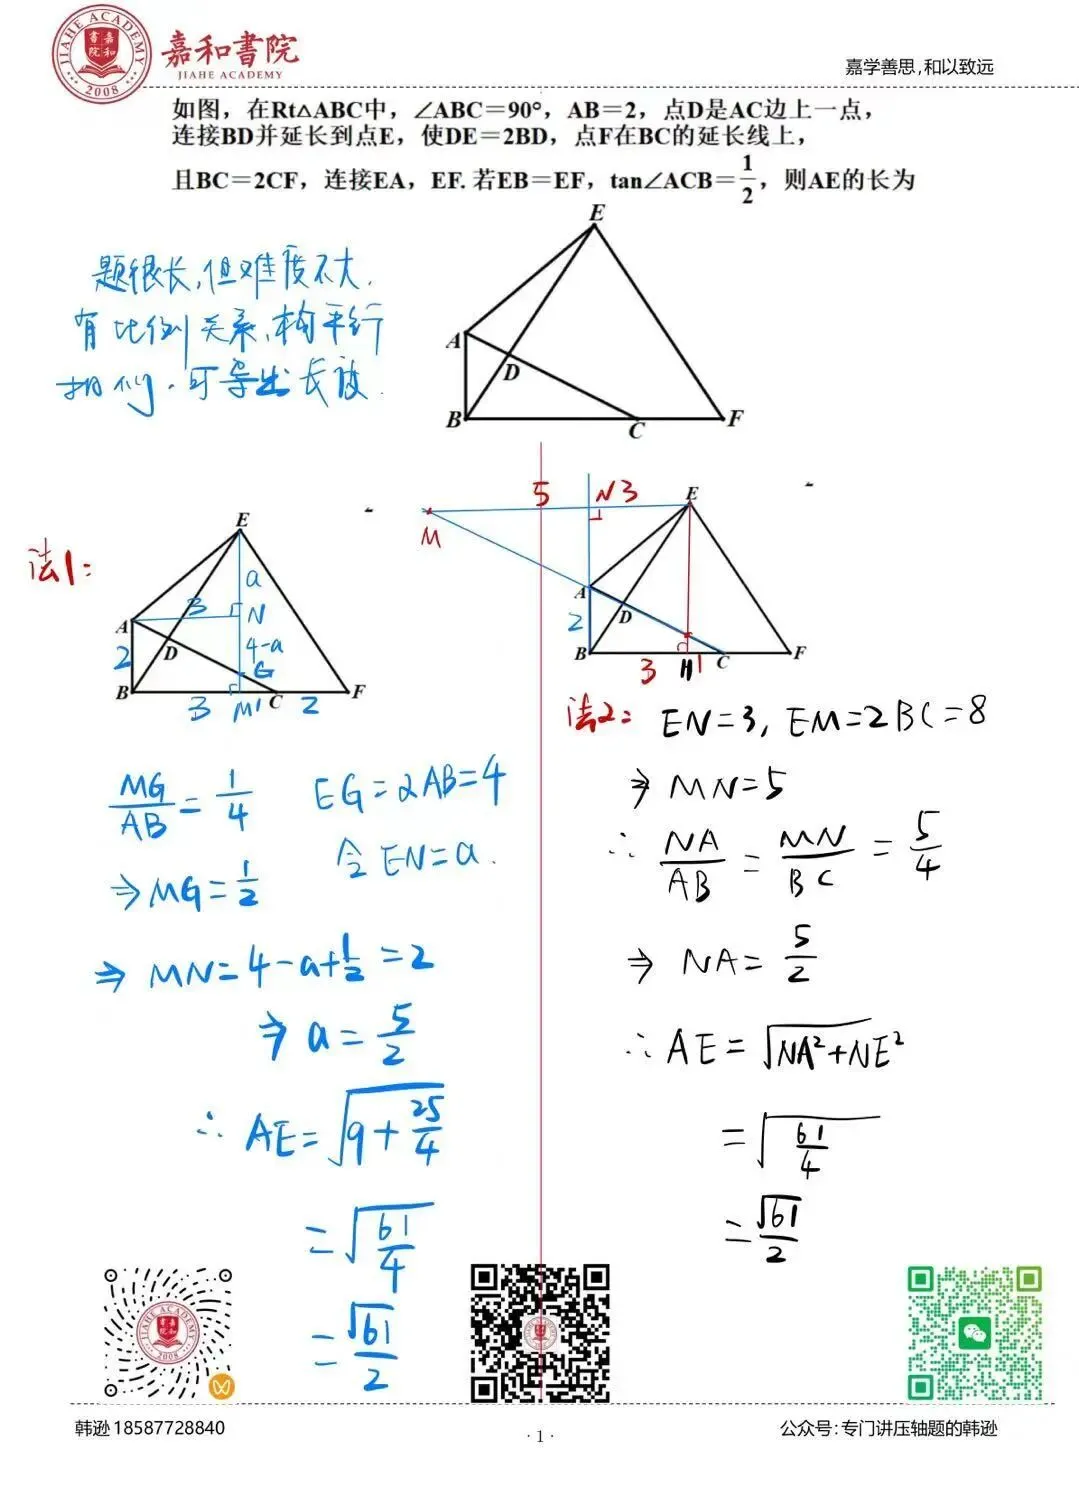 嘉和書院
JIAHE ACADEMY
JIAHE ACADEMY
書院
嘉和
2008
嘉学善思,和以致远
如图，在Rt△ABC中，∠ABC=90°，AB=2，点D是AC边上一点，
连接BD并延长到点E，使DE=2BD，点F在BC的延长线上，
且BC=2CF，连接EA，EF. 若EB=EF，tan∠ACB=1/2，则AE的长为
题很长,但难度不大.
有比例关系,构平行
相似.可导出长度.
E
A
D
B
C
F
法1:
E
a
3
N
A
4-a
2
D
G
B
3
M
1
C
2
F
MG/AB=1/4
EG=2AB=4
⇒MG=1/2
令EN=a.
⇒MN=4-a+1/2=2
⇒a=5/2
∴AE=√(9+25/4)
=√(61/4)
=√61/2
5
N
3
E
M
A
2
D
B
3
H
1
C
F
法2:
EN=3, EM=2BC=8
⇒MN=5
∴NA/AB=MN/BC=5/4
⇒NA=5/2
∴AE=√NA²+NE²
=√(61/4)
=√61/2
JIAHE ACADEMY
2008
韩逊 18587728840
·1·
公众号:专门讲压轴题的韩逊